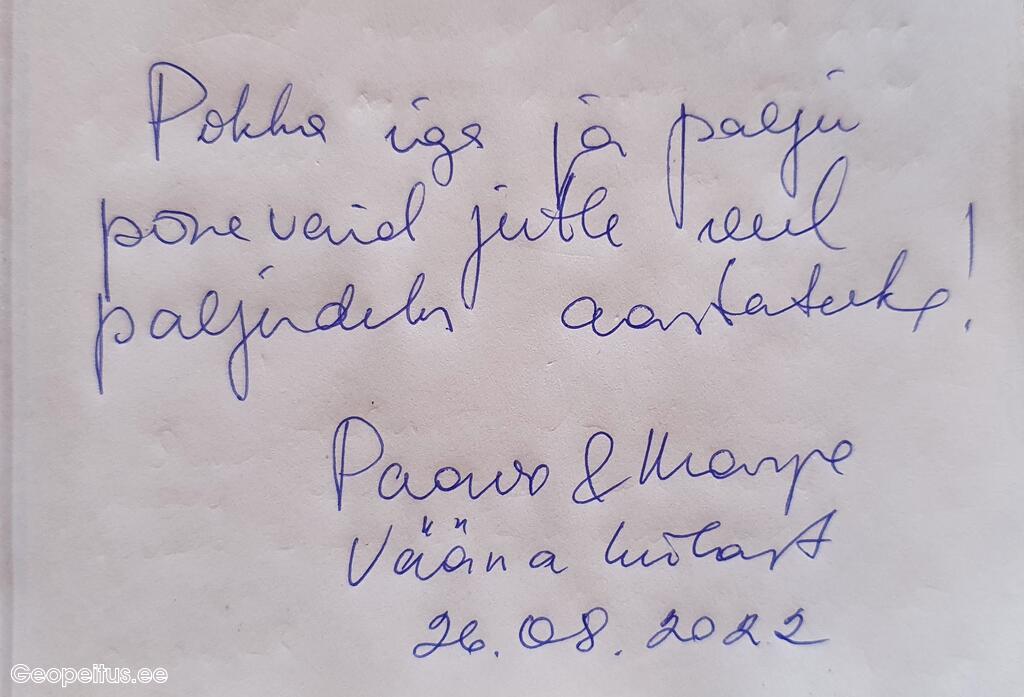 Pikka iga ja palju
põnevaid jutte veel
paljudeks aastateks!
Paavo & Marpe
Vääna külast
26.08.2022
Geopeitus.ee